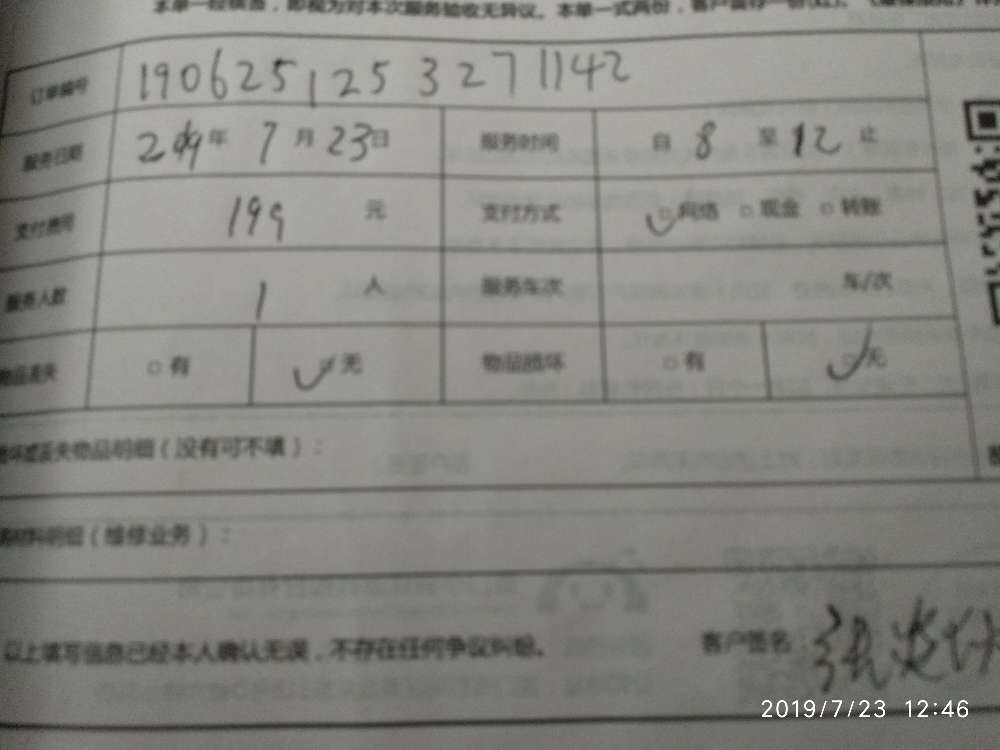 本单一经核签,即视为对本次服务验收无异议。本单一式两份,客户留存一份
订单编号 190625125 3 271142
服务日期 2019年 7月 23日 服务时间 自 8 至 12 止
支付费用 199 元 支付方式 ☑网络 □现金 □转账
服务人数 1 人 服务车次 车/次
物品丢失 □有 ☑无 物品损坏 □有 ☑无
坏或丢失物品明细(没有可不填):
材料明细(维修业务):
以上填写信息已经本人确认无误,不存在任何争议纠纷。 客户签名: 张
2019/7/23 12:46